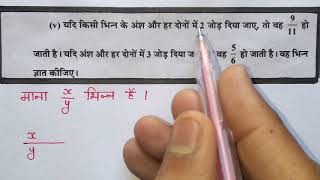 (v) यदि किसी भिन्न के अंश और हर दोनों में 2 जोड़ दिया जाए, तो वह 9/11 हो
जाती है। यदि अंश और हर दोनों में 3 जोड़ दिया जा वह 5/6 हो जाती है। वह भिन्न
ज्ञात कीजिए।
माना x/y भिन्न हैं।
x/y